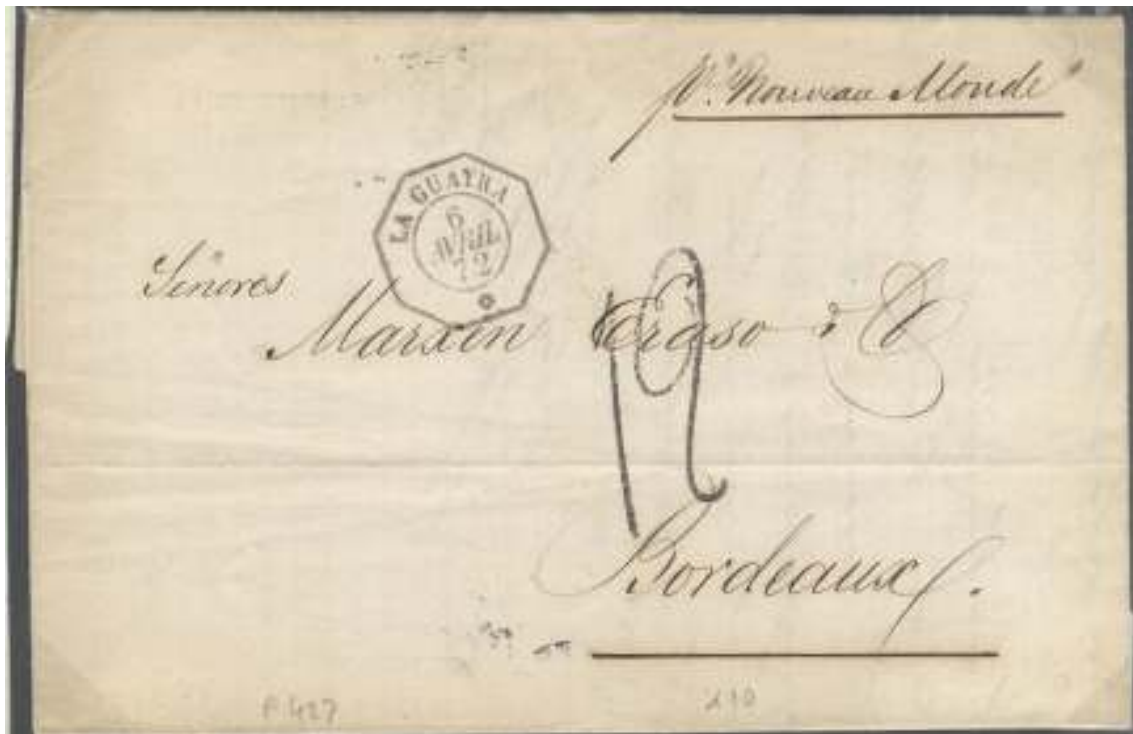 pr. "Nouveau Monde"
LA GUAYRA
6
AVRIL
72
Señores
Marxen Eraso & Co
12
Bordeaux.
F 427
210